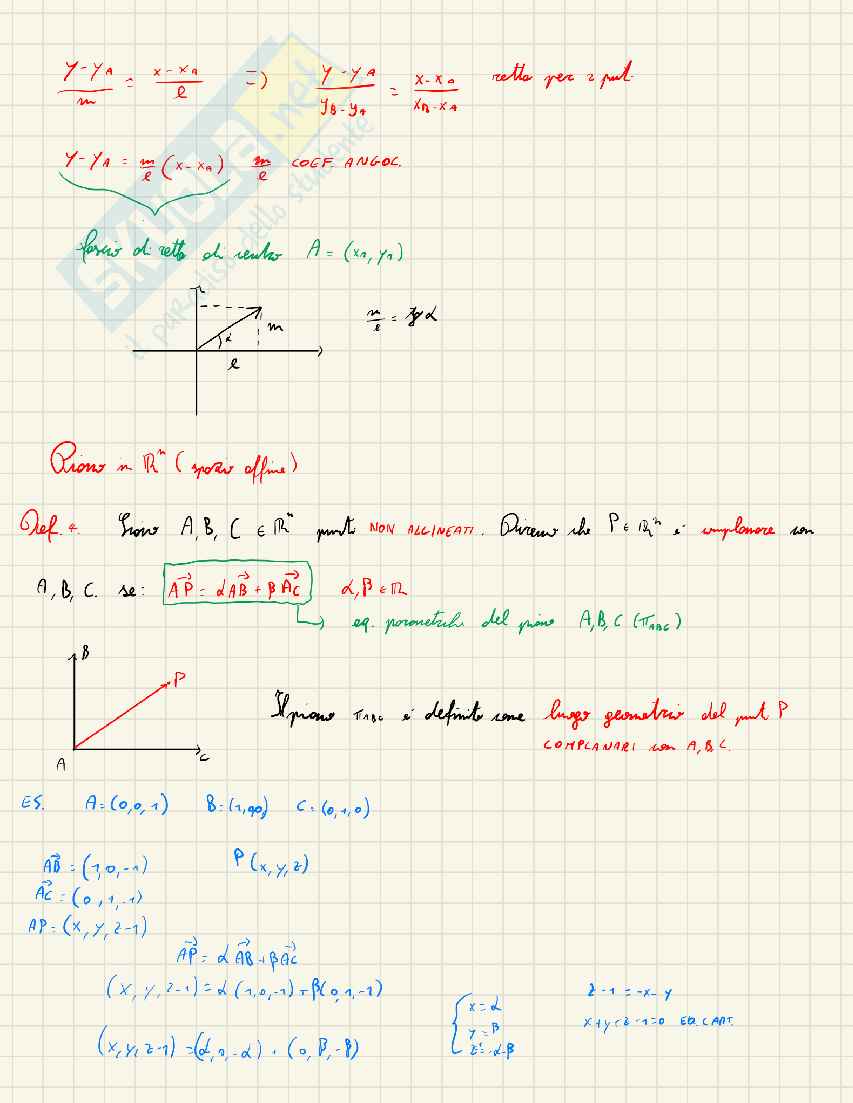 y-yA/m = x-xA/l => y-yA/yB-yA = x-xA/xB-xA retta per 2 punti
y-yA = m/l (x-xA) m/l COEF. ANGOL.
fascio di rette di centro A = (xA, yA)
m/l = tg α
m
α
l
Piano in ℝⁿ (spazio affine)
Def. 4. Siano A, B, C ∈ ℝⁿ punti NON ALLINEATI. Diremo che P ∈ ℝⁿ è complanare con
A, B, C. se: AP = αAB + βAC α, β ∈ ℝ
eq. parametriche del piano A, B, C (πABC)
B
P
Il piano πABC è definito come luogo geometrico dei punti P
COMPLANARI con A, B, C.
A
C
ES. A=(0,0,1) B=(1,0,0) C=(0,1,0)
AB = (1,0,-1) P(x,y,z)
AC = (0,1,-1)
AP = (x,y,z-1)
AP = αAB + βAC
(x,y,z-1) = α(1,0,-1) + β(0,1,-1)
(x,y,z-1) = (α,0,-α) + (0,β,-β)
x = α
y = β
z-1 = -x-y
x+y+z-1=0 EQ. CART.
SKUOLA.net
il paradiso dello studente